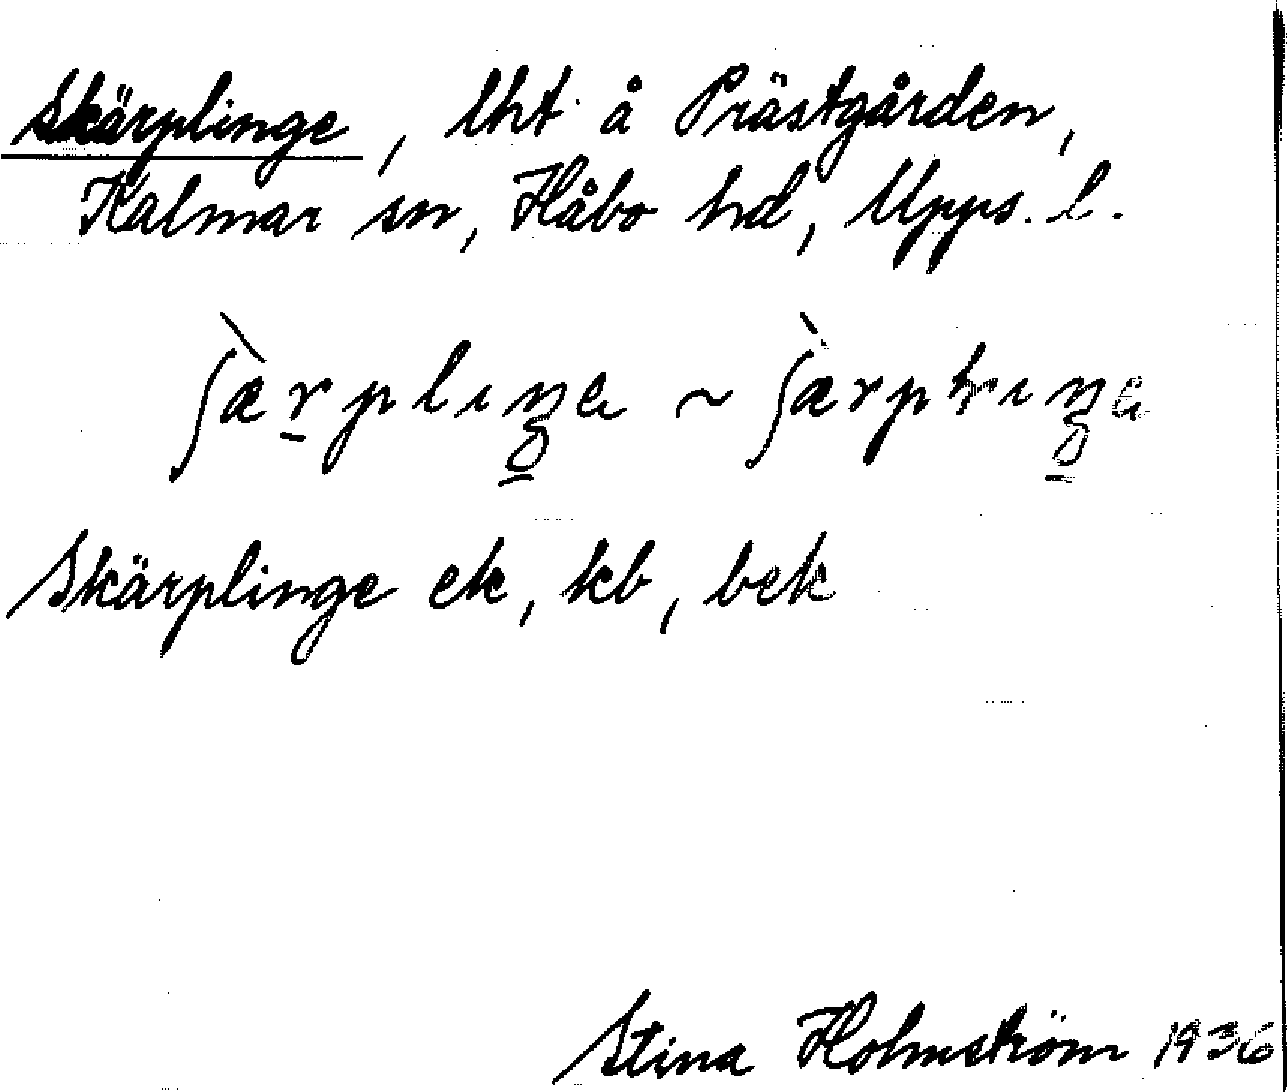 Skärplinge, lht å Prästgården,
Kalmar sn, Håbo hd, Upps. l.
ʃæ̀rplıŋa ~ ʃæ̀rptrıŋa
Skärplinge ek, kb, bek
Stina Holmström 1936